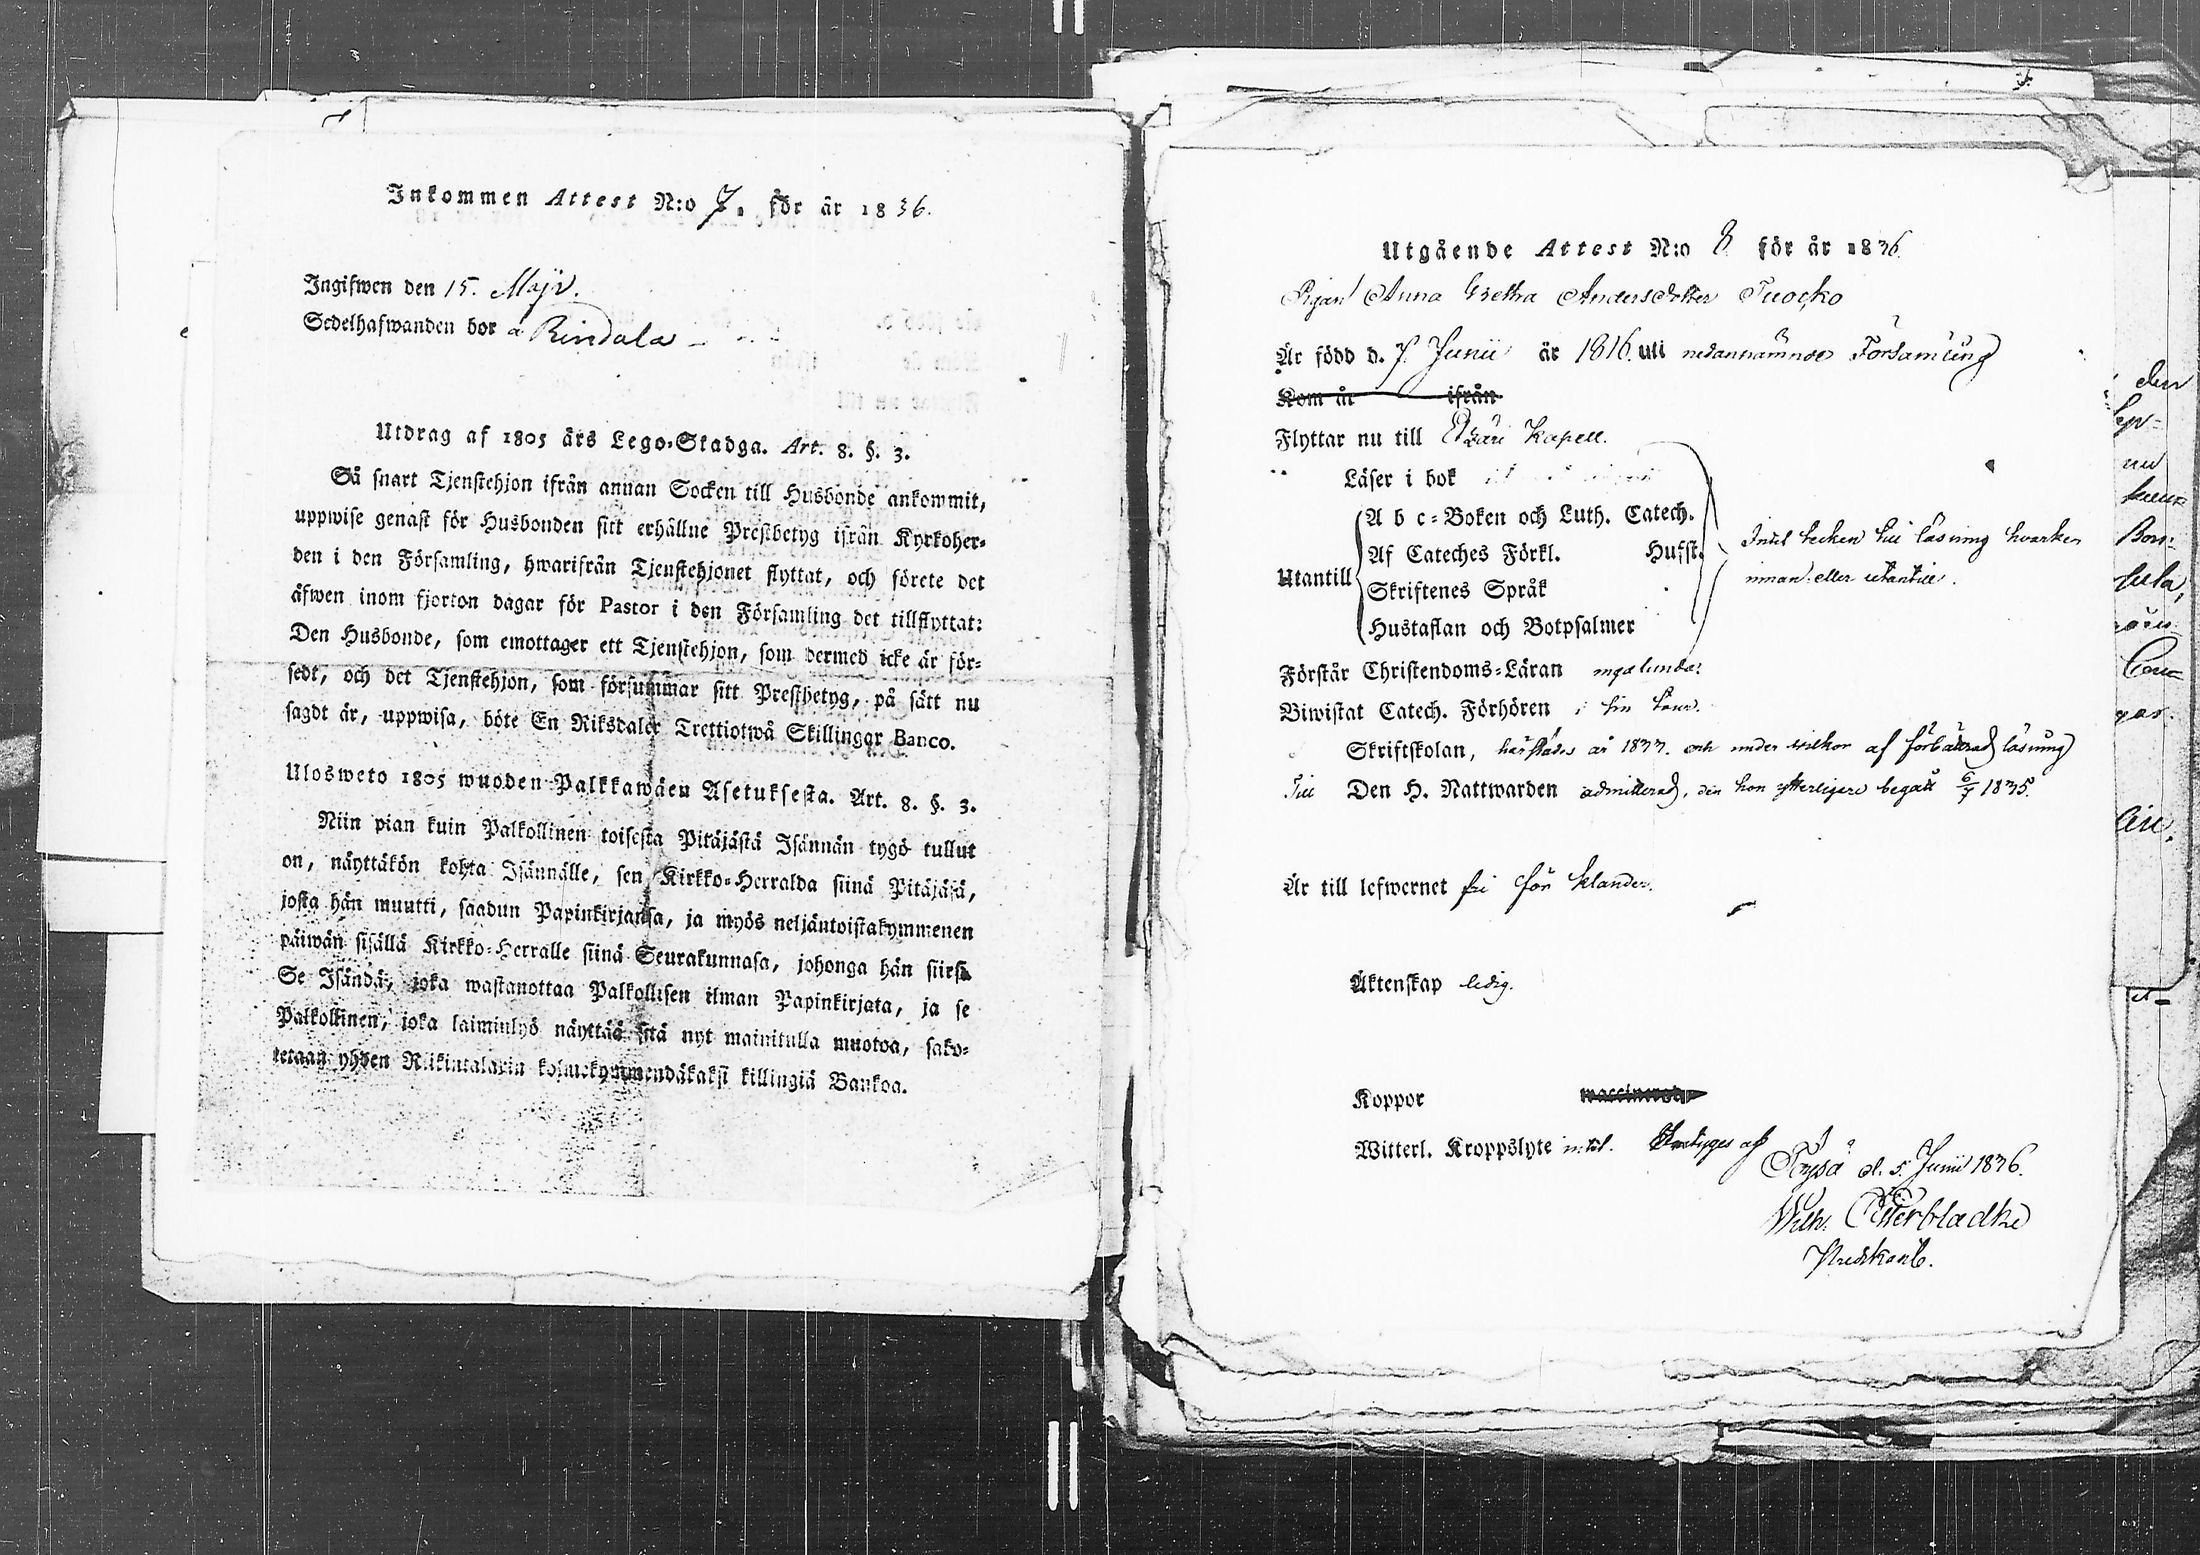 Inkommen Attest N:o 7. för år 1836.
Ingifwen den 15. Maji.
Sedelhafwanden bor å Rindala
Utdrag af 1805 års Lego-Stadga. Art. 8. §. 3.
Så snart Tjenstehjon ifrån annan Socken till Husbonde ankommit,
uppwise genast för Husbonden sitt erhållne Prestbetyg ifrån Kyrkoher-
den i den Församling, hwarifrån Tjenstehjonet flyttat, och förete det
äfwen inom fjorton dagar för Pastor i den Församling det tillflyttat:
Den Husbonde, som emottager ett Tjenstehjon, som dermed icke är för-
sedt, och det Tjenstehjon, som försummar sitt Prestbetyg, på sätt nu
sagdt är, uppwisa, böte En Riksdaler Trettiotwå Skillingar Banco.
Ulosweto 1805 wuoden Palkkawäen Asetuksesta. Art. 8. §. 3.
Niin pian kuin Palkollinen toisesta Pitäjästä Isännän tygö tullut
on, näyttäkön kohta Isännälle, sen Kirkko-Herralda siinä Pitäjäsä,
josta hän muutti, saadun Papinkirjansa, ja myös neljäntoistakymmenen
päiwän sisällä Kirkko-Herralle siinä Seurakunnasa, johonga hän siirsi.
Se Isändä, joka wastanottaa Palkollisen ilman Papinkirjata, ja se
Palkollinen, joka laiminlyö näyttää sitä nyt mainitulla muotoa, sako-
tetaan yhden Rikintalarin kolmekymmendäkaksi killingiä Bankoa.
Utgående Attest N:o 8 för år 1836.
Pigan Anna Gretha Andersdotter Tuocko
Är född d. 7. Junii år 1816. uti nedannämnde Församling
Kom år ifrån
Flyttar nu till Kapell.
Läser i bok
A b c-Boken och Luth. Catech.
Af Cateches Förkl. Husft.
Utantill
Skriftenes Språk
Hustaflan och Botpsalmer
Intet tecken till läsning hvarken
innan eller utantill.
Förstår Christendoms-Läran ingalunda.
Biwistat Catech. Förhören i sin tour.
Skriftskolan, härstädes år 1833. och under wilkor af förbättrad läsning
Till Den H. Nattwarden admitterad, den hon ytterligare begått 6/9 1835.
Är till lefwernet fri för klander.
Äktenskap ledig.
Koppor
Witterl. Kroppslyte intet. Betygas af
Töysä d. 5. Junii 1836.
Wilh. Österbladh
Predikant.
den
un
Bon-